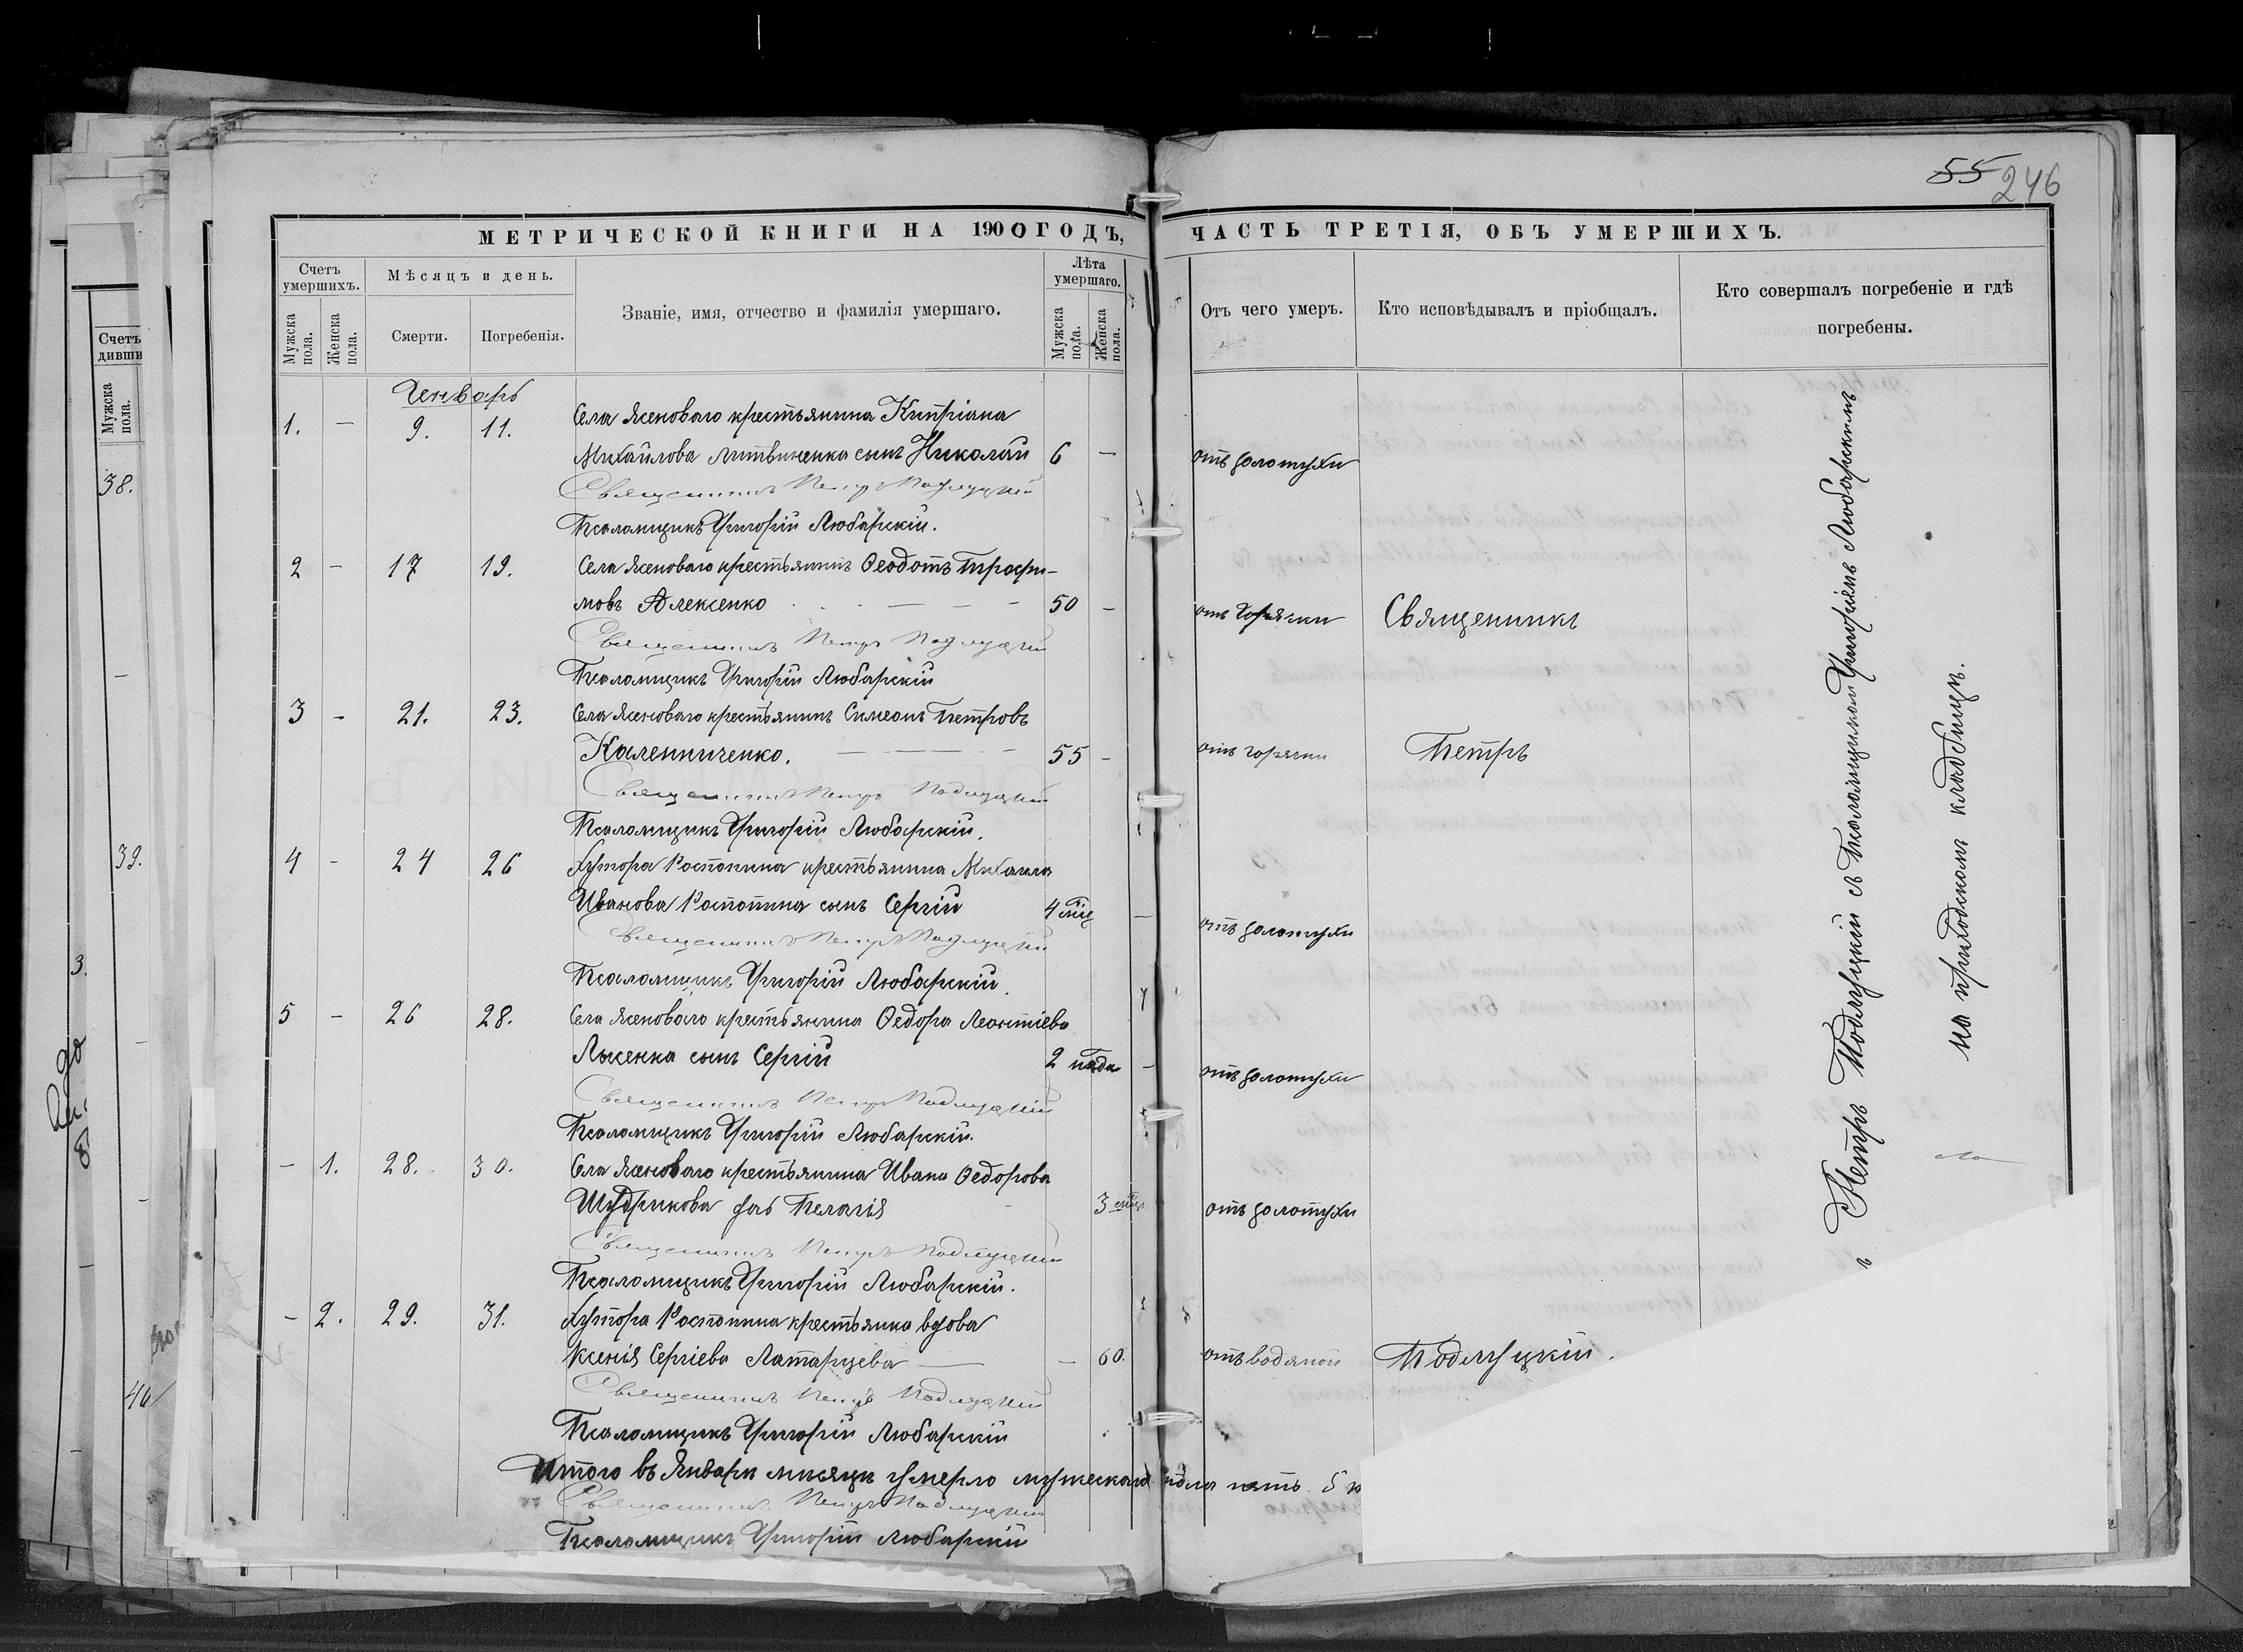 55 246
МЕТРИЧЕСКОЙ КНИГИ НА 1900 ГОДЪ,
ЧАСТЬ ТРЕТІЯ, ОБЪ УМЕРШИХЪ.
Счетъ умершихъ.
Мѣсяцъ и день.
Званіе, имя, отчество и фамилія умершаго.
Лѣта умершаго.
Отъ чего умеръ.
Кто исповѣдывалъ и пріобщалъ.
Кто совершалъ погребеніе и гдѣ
погребены.
Мужска пола.
Женска пола.
Смерти.
Погребенія.
Мужска пола.
Женска пола.
Счетъ
дивши
Мужска пола.
38.
39.
3.
40
Генварь
1. - 9. 11. Села Ясеноваго крестьянина Кипріана
Михайлова Литвиненка сынъ Николай 6 - отъ золотухи
Священникъ Петръ Подлуцкій
Псаломщикъ Григорій Любарскій.
2 - 17 19. Села Ясеноваго крестьянинъ Ѳеодотъ Трофи-
мовъ Алексенко 50 - отъ горячки Священникъ
Священникъ Петръ Подлуцкій
Псаломщикъ Григорій Любарскій
3 - 21. 23. Села Ясеноваго крестьянинъ Симеонъ Петровъ
Калениченко. 55 - отъ горячки Петръ
Священникъ Петръ Подлуцкій
Псаломщикъ Григорій Любарскій.
4 - 24 26 Хутора Костопина крестьянина Михаила
Иванова Костопина сынъ Сергій 4 мѣц - отъ золотухи
Священникъ Петръ Подлуцкій
Псаломщикъ Григорій Любарскій.
5 - 26 28. Села Ясеноваго крестьянина Ѳедора Леонтіева
Лысенка сынъ Сергій 2 - отъ золотухи
Священникъ Петръ Подлуцкій
Псаломщикъ Григорій Любарскій.
- 1. 28. 30. Села Ясеноваго крестьянина Ивана Ѳедорова
Шудрикова дочь Пелагія 3 мѣц отъ золотухи
Священникъ Петръ Подлуцкій
Псаломщикъ Григорій Любарскій.
- 2. 29. 31. Хутора Костопина крестьянка вдова
Ксенія Сергіева Латарцева - 60. отъ водяной Подлуцкій.
Священникъ Петръ Подлуцкій
Псаломщикъ Григорій Любарскій
Итого въ Январѣ мѣсяцѣ умерло мужескаго пола пять 5
Священникъ Петръ Подлуцкій
Псаломщикъ Григорій Любарскій
Петръ Подлуцкій съ Псаломщикомъ Григоріемъ Любарскимъ
на приходскомъ кладбищѣ.